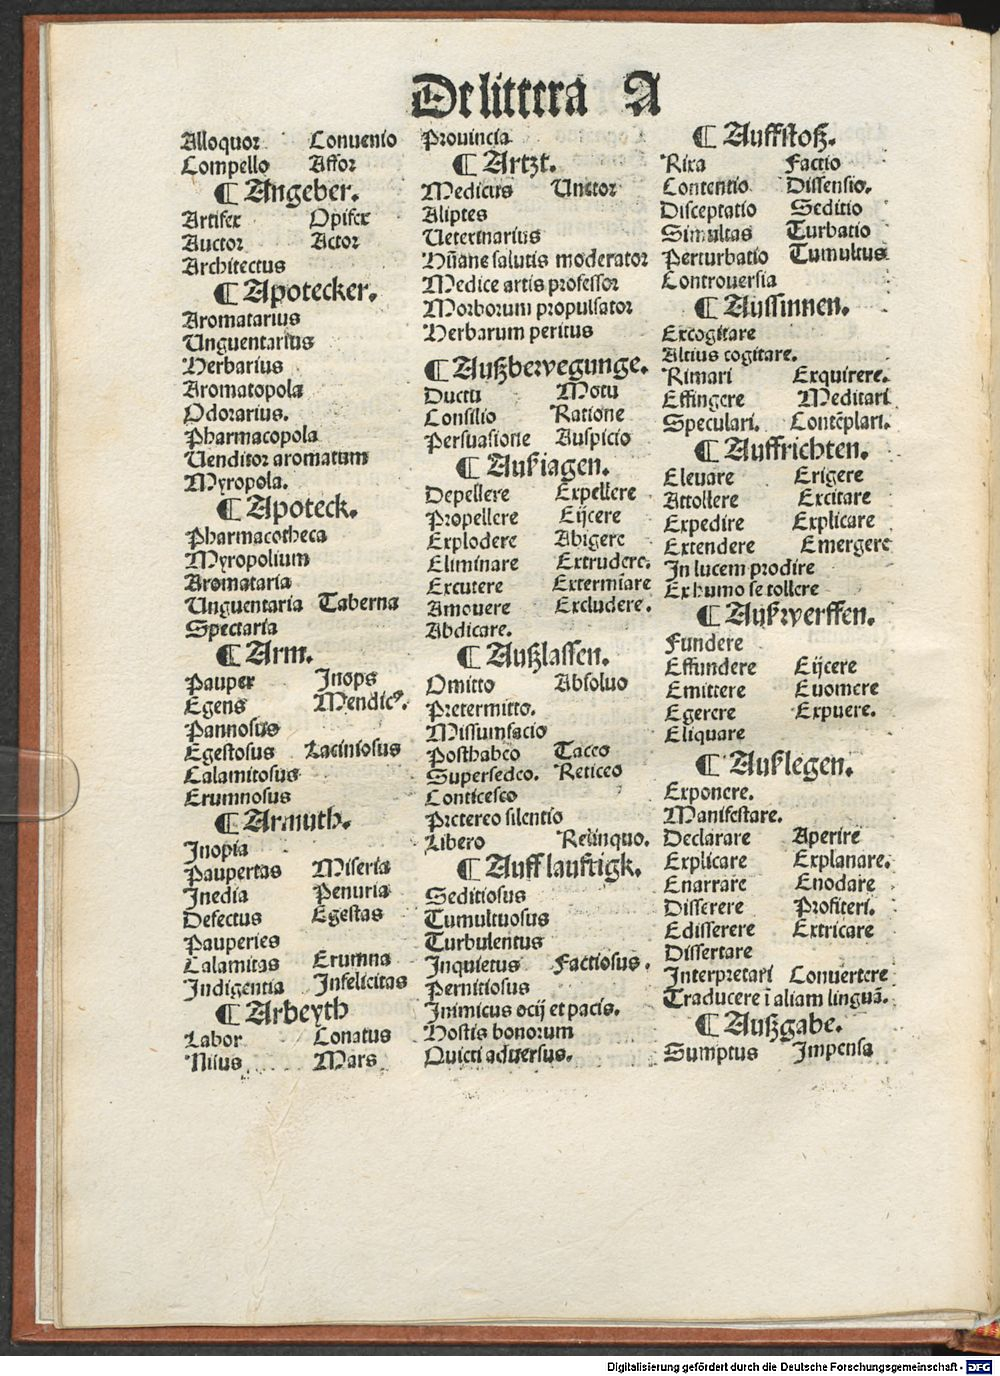 De littera A
Alloquor Conuenio
Compello Affor
¶ Angeber.
Artifex Opifex
Auctor Actor
Architectus
¶ Apotecker.
Aromatarius
Unguentarius
Herbarius
Aromatopola
Odorarius.
Pharmacopola
Uenditor aromatum
Myropola.
¶ Apoteck.
Pharmacotheca
Myropolium
Aromataria
Unguentaria Taberna
Spectaria
¶ Arm.
Pauper Inops
Egens Mendicꝰ.
Pannosus
Egestosus Laciniosus
Calamitosus
Erumnosus
¶ Armuth.
Inopia
Paupertas Miseria
Inedia Penuria
Defectus Egestas
Pauperies
Calamitas Erumna
Indigentia Infelicitas
¶ Arbeyth
Labor Conatus
Nisus Mars
Prouincia
¶ Artzt.
Medicus Unctor
Aliptes
Ueterinarius
Hūane salutis moderator
Medice artis professor
Morborum propulsator
Herbarum peritus
¶ Außbewegunge.
Ductu Motu
Consilio Ratione
Persuasione Auspicio
¶ Außiagen.
Depellere Expellere
Propellere Eijcere
Explodere Abigere
Eliminare Extrudere.
Excutere Extermīare
Amouere Excludere.
Abdicare.
¶ Außlassen.
Omitto Absoluo
Pretermitto.
Missumfacio
Posthabeo Taceo
Supersedeo. Reticeo
Conticesco
Pretereo silentio
Libero Relinquo.
¶ Auff lauftigk.
Seditiosus
Tumultuosus
Turbulentus
Inquietus Factiosus.
Pernitiosus
Inimicus ocij et pacis.
Hostis bonorum
Quieti aduersus.
¶ Auffstoß.
Rixa Factio
Contentio Dissensio.
Disceptatio Seditio
Simultas Turbatio
Perturbatio Tumultus
Controuersia
¶ Aussinnen.
Excogitare
Altius cogitare.
Rimari Exquirere.
Effingere Meditari
Speculari. Contēplari.
¶ Auffrichten.
Eleuare Erigere
Attollere Excitare
Expedire Explicare
Extendere Emergere
In lucem prodire
Ex humo se tollere
¶ Außwerffen.
Fundere
Effundere Eijcere
Emittere Euomere
Egerere Expuere.
Eliquare
¶ Außlegen.
Exponere.
Manifestare.
Declarare Aperire
Explicare Explanare.
Enarrare Enodare
Disserere Profiteri.
Edisserere Extricare
Dissertare
Interpretari Conuertere
Traducere ī aliam linguā.
¶ Außgabe.
Sumptus Impensa
Digitalisierung gefördert durch die Deutsche Forschungsgemeinschaft - DFG